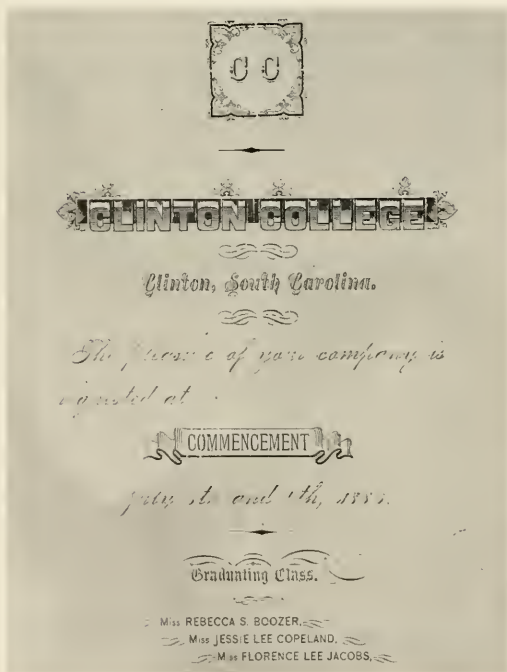 C C
CLINTON COLLEGE
Clinton, South Carolina.
The of your company is
at
COMMENCEMENT
July and
Graduating Class.
Miss REBECCA S. BOOZER,
Miss JESSIE LEE COPELAND,
Miss FLORENCE LEE JACOBS,